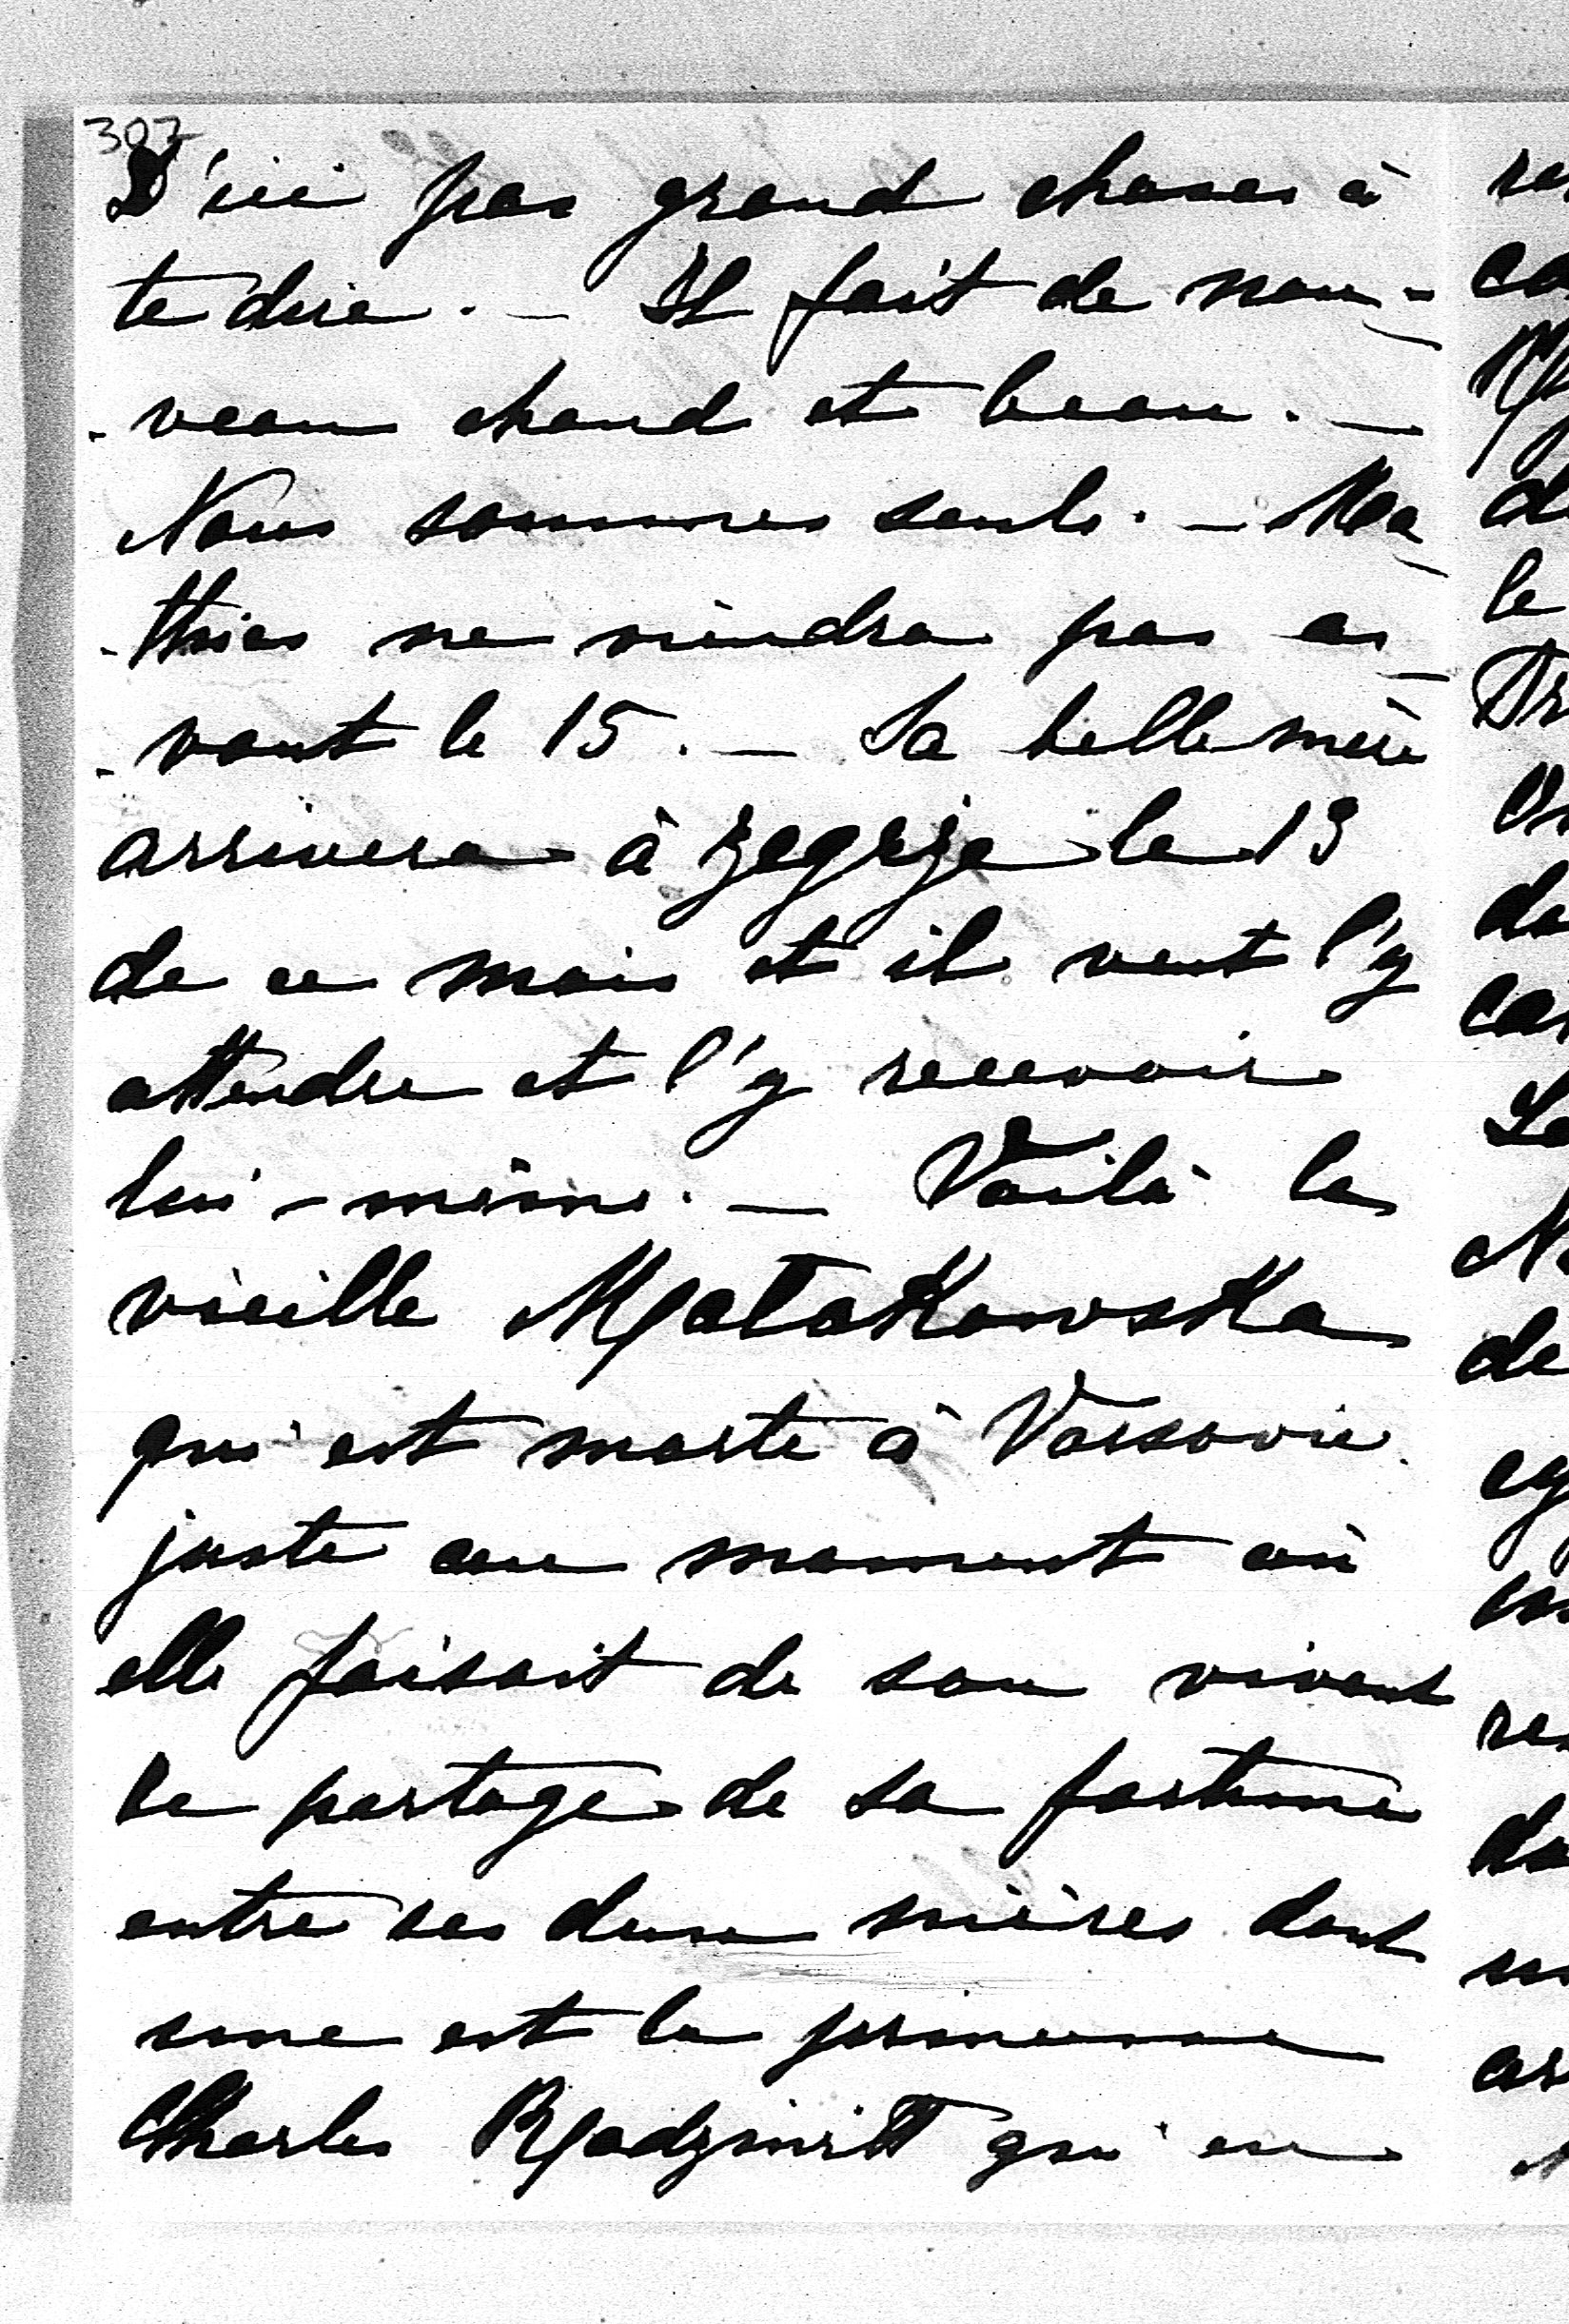 307
D'ici pas grand choses à
te dire. — Il fait de nou-
-veau chaud et beau. —
Nous sommes seuls. — Ma-
-thias ne viendra pas a-
-vant le 15. — Sa belle mère
arrivera à Zegrze le 13
de ce mois et il veut l'y
attendre et l'y recevoir
lui-même. — Voilà la
vieille Małakowska
qui est morte à Varsovie
juste au moment où
elle faisait de son vivant
le partage de sa fortune
entre ses deux nièces dont
une est la princesse
Charles Radziwiłł qui en